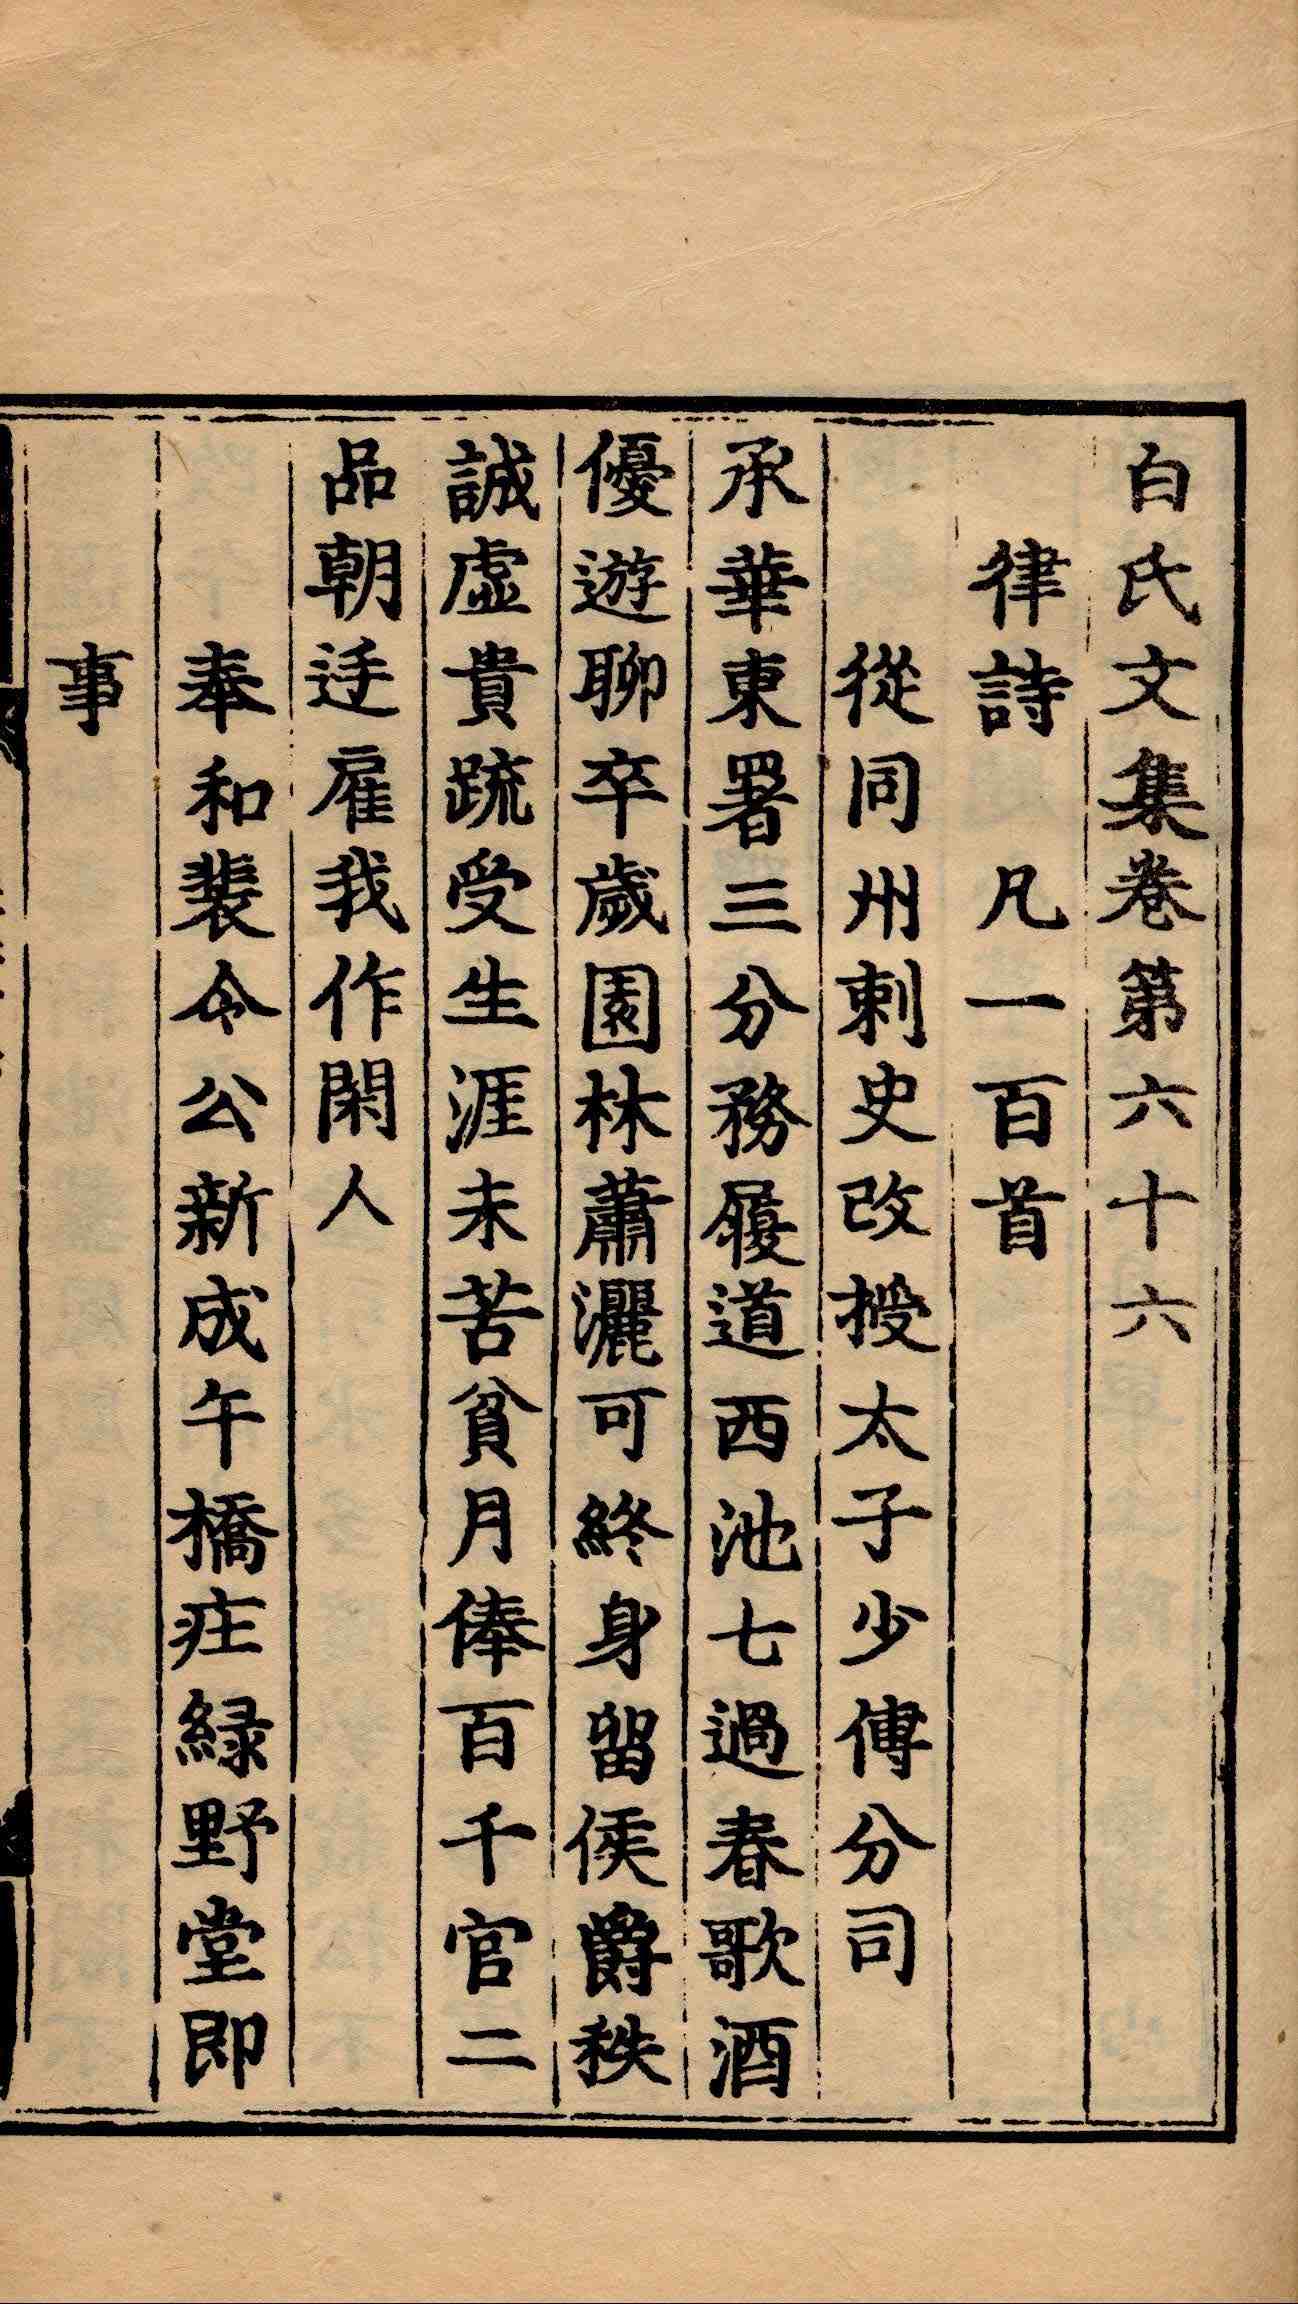 白氏文集卷第六十六
律詩 凡一百首
從同州刺史改授太子少傅分司
承華東署三分務履道西池七過春歌酒
優遊聊卒歲園林蕭灑可終身留侯爵秩
誠虛貴䟽受生涯未苦貧月俸百千官二
品朝廷雇我作閑人
奉和裴令公新成午橋庄緑野堂即
事